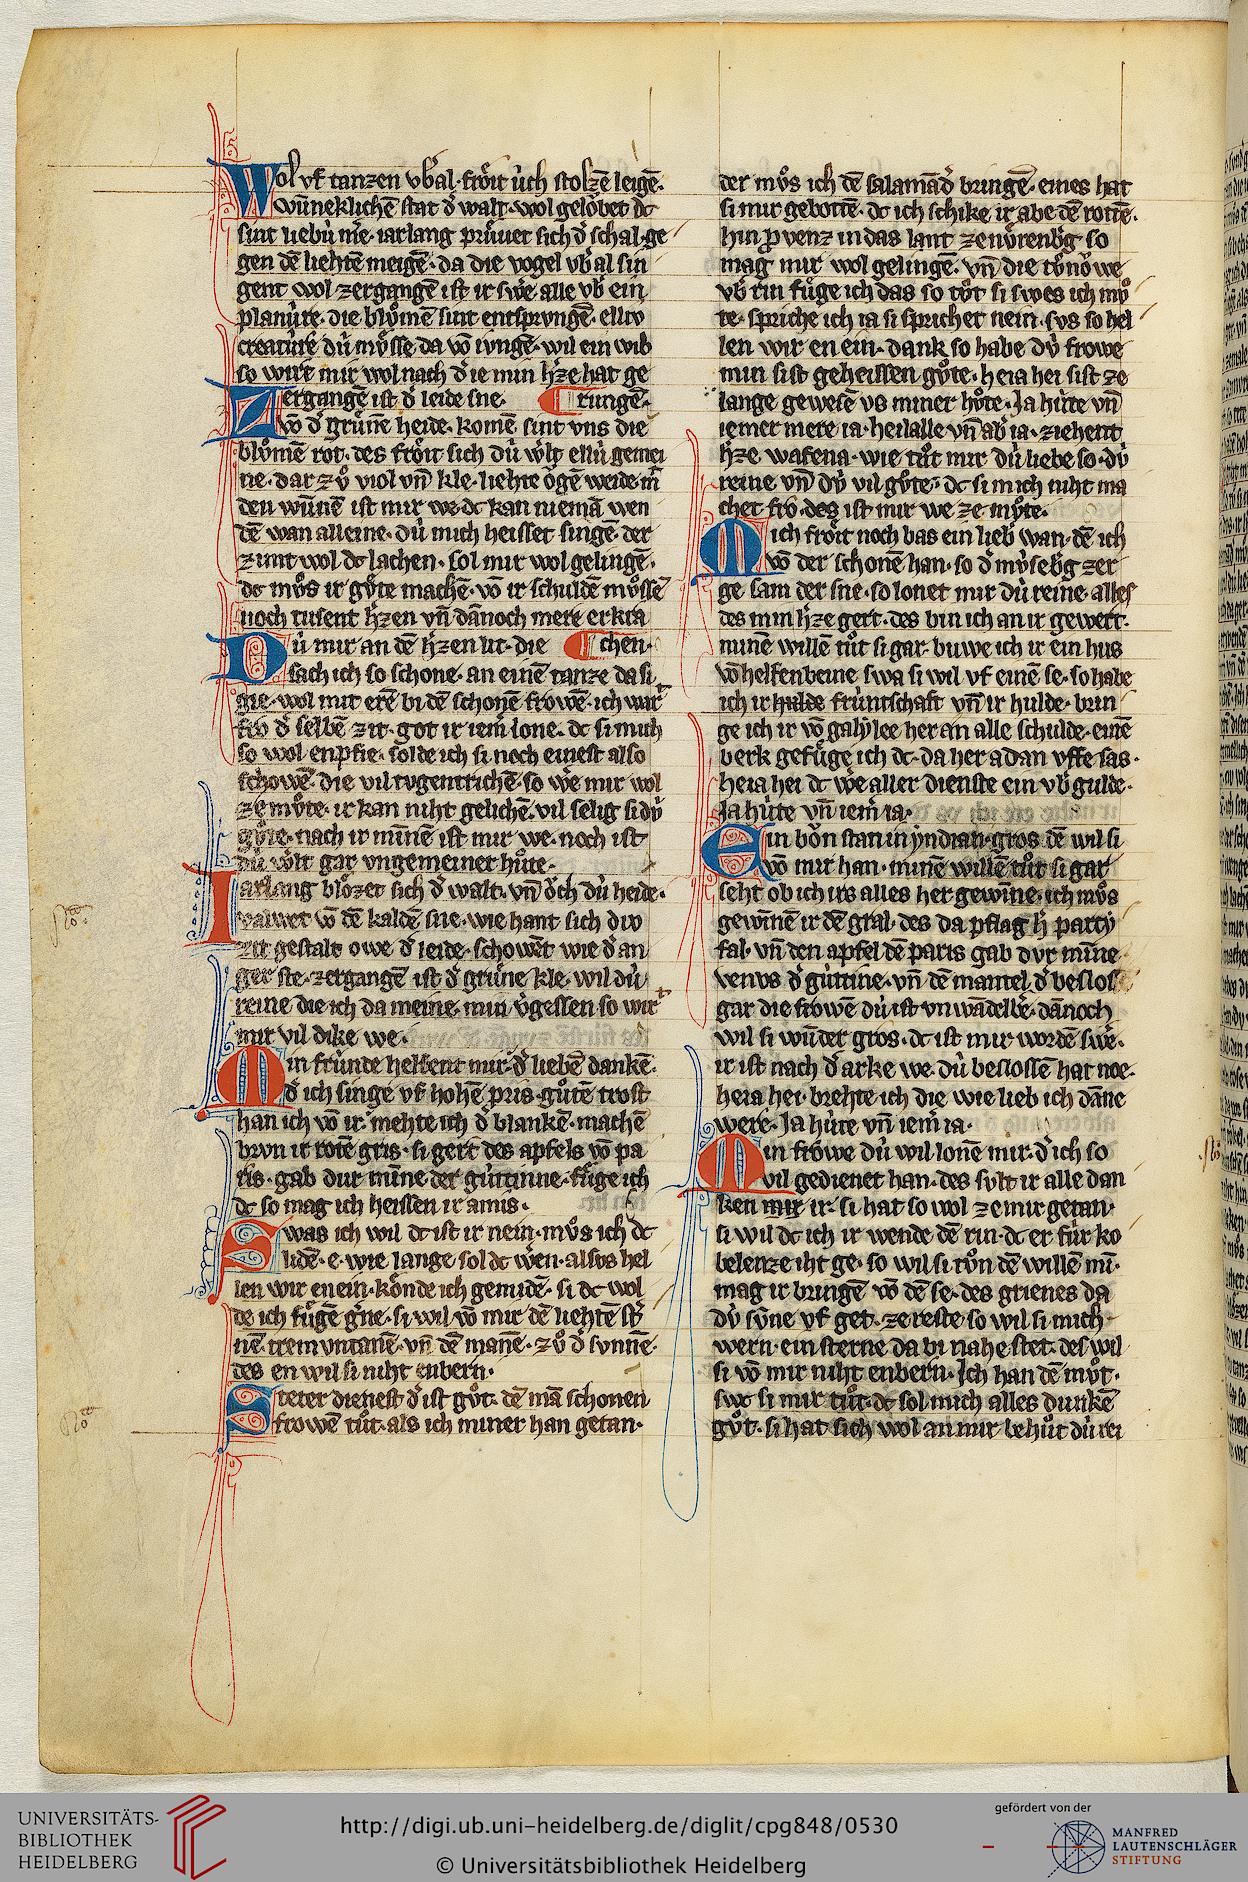 Wol vf tanzen vb̾al· froͤit uͤch stolzē leigē·
wūneklichē stat d̾ walt· wol geloͮbet dc
sint liebú mͤe· iarlang pruͤuet sich d̾ schal· ge
gen dē liehtē meigē· da die vogel vb̾al sin
gent wol zergangē ist ir sw̾e alle vb̾ ein
planúre· die bluͦmē sint entsprvngē· ellv
creatúre dú muͤsse da vō ivngē· wil ein wib
so wirt mir wol nach d̾ ie min h̾ze hat ge
Zergangē ist d̾ leide sne· rungē·
vō d̾ gruͤnē heide· komē sint vns die
bluͦmē rot· des froͤit sich dú w̾lt ellú gemei
ne· dar zuͦ viol vn̄ kle· liehte oͮgē weide m̄
den wūnē ist mir we· dc kan niemā wen
dē wan alleine· dú mich heisset singē· der
zimt wol dc lachen· sol mir wol gelingē·
dc muͦs ir guͤte machē· vō ir schuldē muͤssē
noch tusent h̾zen vn̄ dānoch mere erkra
Dú mir an dē h̾zen lit· die chen·
sach ich so schone· an einē tanze da si
gie· wol mit erē bi dē schonē frowē· ich wart
fro d̾ selbē zit· got ir iem̾ lone· dc si mich
so wol enpfie· solde ich si noch einest also
schowē· die vil tvgentrichē· so w̾e mir wol
ze muͦte· ir kan niht gelichē· vil selig si dú
guͦte· nach ir minnē ist mir we· noch ist
dú w̾lt gar vngemeiner huͦte·
Iarlang bloͤzet sich d̾ walt· vn̄ oͮch dú heide·
valwet vō dē kaldē sne· wie hant sich dv
zit gestalt owe d̾ leide· schowēt wie d̾ an
ger ste· zergangē ist d̾ gruͤne kle· wil dú
reine die ich da meine· min v̾gessen so wirt
mir vil dike we·
Min frúnde helfent mir· d̾ liebē dankē·
d̾ ich singe vf hohē pris· guͦtē trost
han ich vō ir· mehte ich d̾ blankē· machē
brvn ir rotē gris· si gert des apfels vō pa
ris· gab dur mīne der gúttinne· fuͤge ich
dc so mag ich heissen ir amis·
Swas ich wil dc ist ir nein· muͦs ich dc
lidē· e· wie lange sol dc w̾en· alsvs hel
len wir en ein· koͤnde ich gemidē· si dc wol
de ich fuͤgē g̾ne· si wil vō mir dē liehtē st̾
nē· trem vntanē· vn̄ dē manē· zuͦ d̾ svnnē·
des en wil si niht enbern·
Steter dienest d̾ ist guͦt· dē mā schonen
frowē tuͦt· als ich miner han getan·
der muͦs ich dē salamād̾ bringē· eines hat
si mir gebotē· dc ich schike ir abe dē rottē·
hin provenz in das lant ze nv̾renb̾g so
mag mir wol gelingē· vn̄ die tuͦnoͮwe
vb̾ rin fuͤge ich das so tuͦt si swes ich muͦ
te· spriche ich ia si sprichet nein· svs so hel
len wir en ein· dank so habe dú frowe
min sist geheissen guͦte· heia hei sist ze
lange gewesē vs miner huͦte· Ja húte vn̄
iemer mere ia· heilalle vn̄ ab̾ ia· ziehent
h̾ze wafena· wie tuͦt mir dú liebe so· dú
reine vn̄ dú vil guͦte· dc si mich niht ma
chet fro· des ist mir we ze muͦte·
Mich froͤit noch bas ein lieb wan· dē ich
vō der schonē han· so d̾ mv̾seb̾g zer
ge sam der sne· so lonet mir dú reine· alles
des min h̾ze gert· des bin ich an ir gewert·
minē willē tuͦt si gar· buwe ich ir ein hus
vō helfenbeine swa si wil vf einē se· so habe
ich ir hulde frúntschaft vn̄ ir hulde· brin
ge ich ir vō galylee her an alle schulde· einē
berk gefuͤge ich dc· da her adan vffe sas·
heia hei dc w̾e aller dienste ein vb̾gulde·
Ja húte vn̄ iem̾ ia·
Ein boͮn stan in yndian· gros dē wil si
vō mir han· minē willē tuͦt si gar
seht ob ich irs alles her gewīne· ich muͦs
gewīnē ir dē gral· des da pflag h̾ parcy
fal· vn̄ den apfel dē paris gab dvr mīne
venvs d̾ gúttine· vn̄ dē mantel d̾ beslos
gar die frowē dú ist vnwādelb̾e· dānoch
wil si wūder gros· dc ist mir wordē sw̾e·
ir ist nach d̾ arke we· dú beslossē hat noe·
heia hei· brehte ich die wie lieb ich dāne
were· Ja húte vn̄ iem̾ ia·
Min frowe dú wil lonē mir· d̾ ich so
vil gedienet han· des svlt ir alle dan
ken mir ir· si hat so wol ze mir getan·
si wil dc ich ir wende dē rin· dc er fúr ko
belenze iht ge· so wil si tuͦn dē willē mī·
mag ir bringē vō dē se· des grienes da
dú svne vf get· ze reste so wil si mich
wern· ein sterne da bi nahe stet· des wil
si vō mir niht enbern· Ich han dē muͦt·
swc si mir tuͦt· dc sol mich alles dunkē
guͦt· si hat sich wol an mir behuͦt dú rei
UNIVERSITÄTS-
BIBLIOTHEK
HEIDELBERG
http://digi.ub.uni-heidelberg.de/diglit/cpg848/0530
© Universitätsbibliothek Heidelberg
gefördert von der
MANFRED
LAUTENSCHLÄGER
STIFTUNG